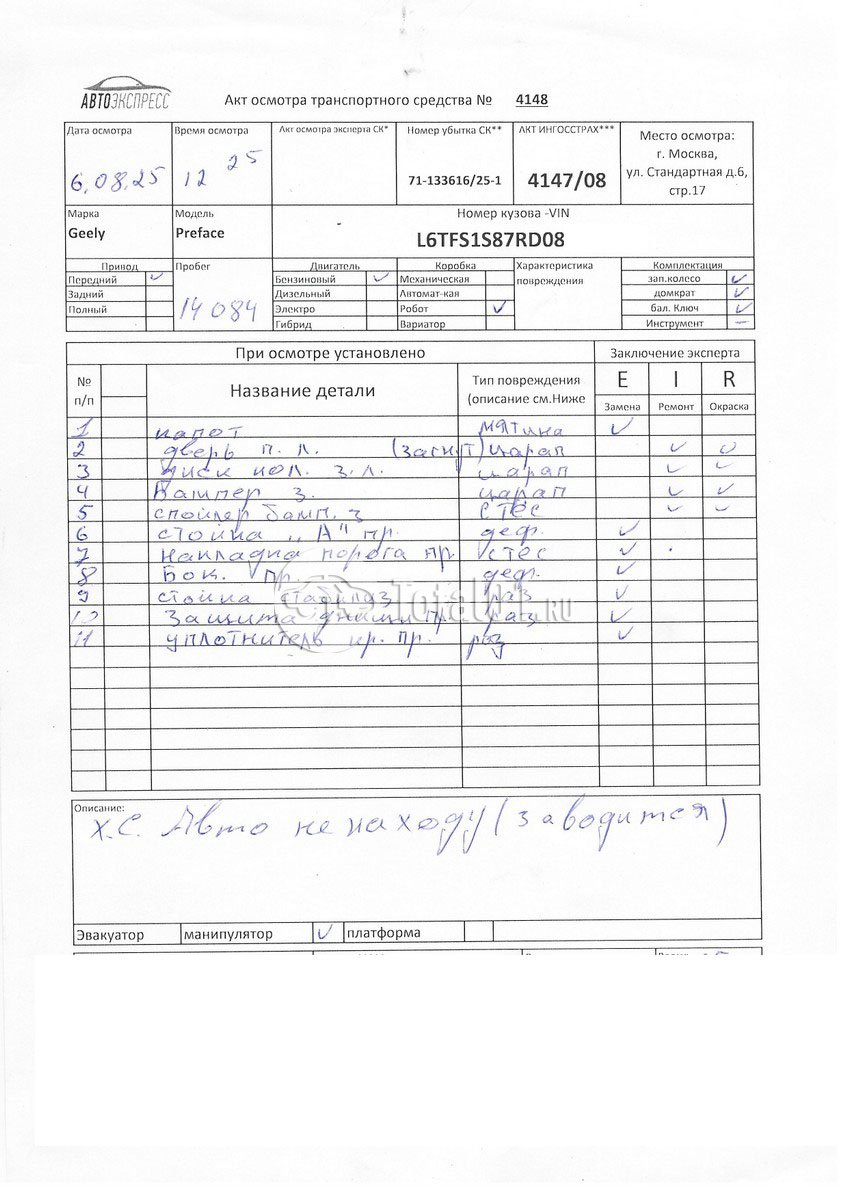 АВТОЭКСПРЕСС
Акт осмотра транспортного средства № 4148
Дата осмотра Время осмотра Акт осмотра эксперта СК* Номер убытка СК** АКТ ИНГОССТРАХ*** Место осмотра:
г. Москва,
6,08,25 12 25 71-133616/25-1 4147/08 ул. Стандартная д.6,
стр.17
Марка Модель Номер кузова -VIN
Geely Preface L6TFS1S87RD08
Привод Пробег Двигатель Коробка Характеристика Комплектация
Передний ✓ Бензиновый ✓ Механическая повреждения зап.колесо ✓
Задний Дизельный Автомат-кая домкрат ✓
Полный 14084 Электро Робот ✓ бал. Ключ ✓
Гибрид Вариатор Инструмент –
При осмотре установлено Заключение эксперта
№ п/п Название детали Тип повреждения (описание см.Ниже E I R
Замена Ремонт Окраска
1 капот мятина ✓
2 дверь п. л. (загнут) царап ✓ ✓
3 диск кол. з.л. царап ✓ ✓
4 Бампер з. царап ✓ ✓
5 спойлер бамп. з стес ✓ ✓
6 стойка „А" пр. деф. ✓
7 накладка порога пр. стес ✓
8 Бок. пр. деф. ✓
9 стойка раз ✓
10 Защита днища пр. раз ✓
11 уплотнитель кр. пр. раз ✓
Описание:
Х.С. Авто не на ходу (заводится)
Эвакуатор манипулятор ✓ платформа
TotalUTL.RU